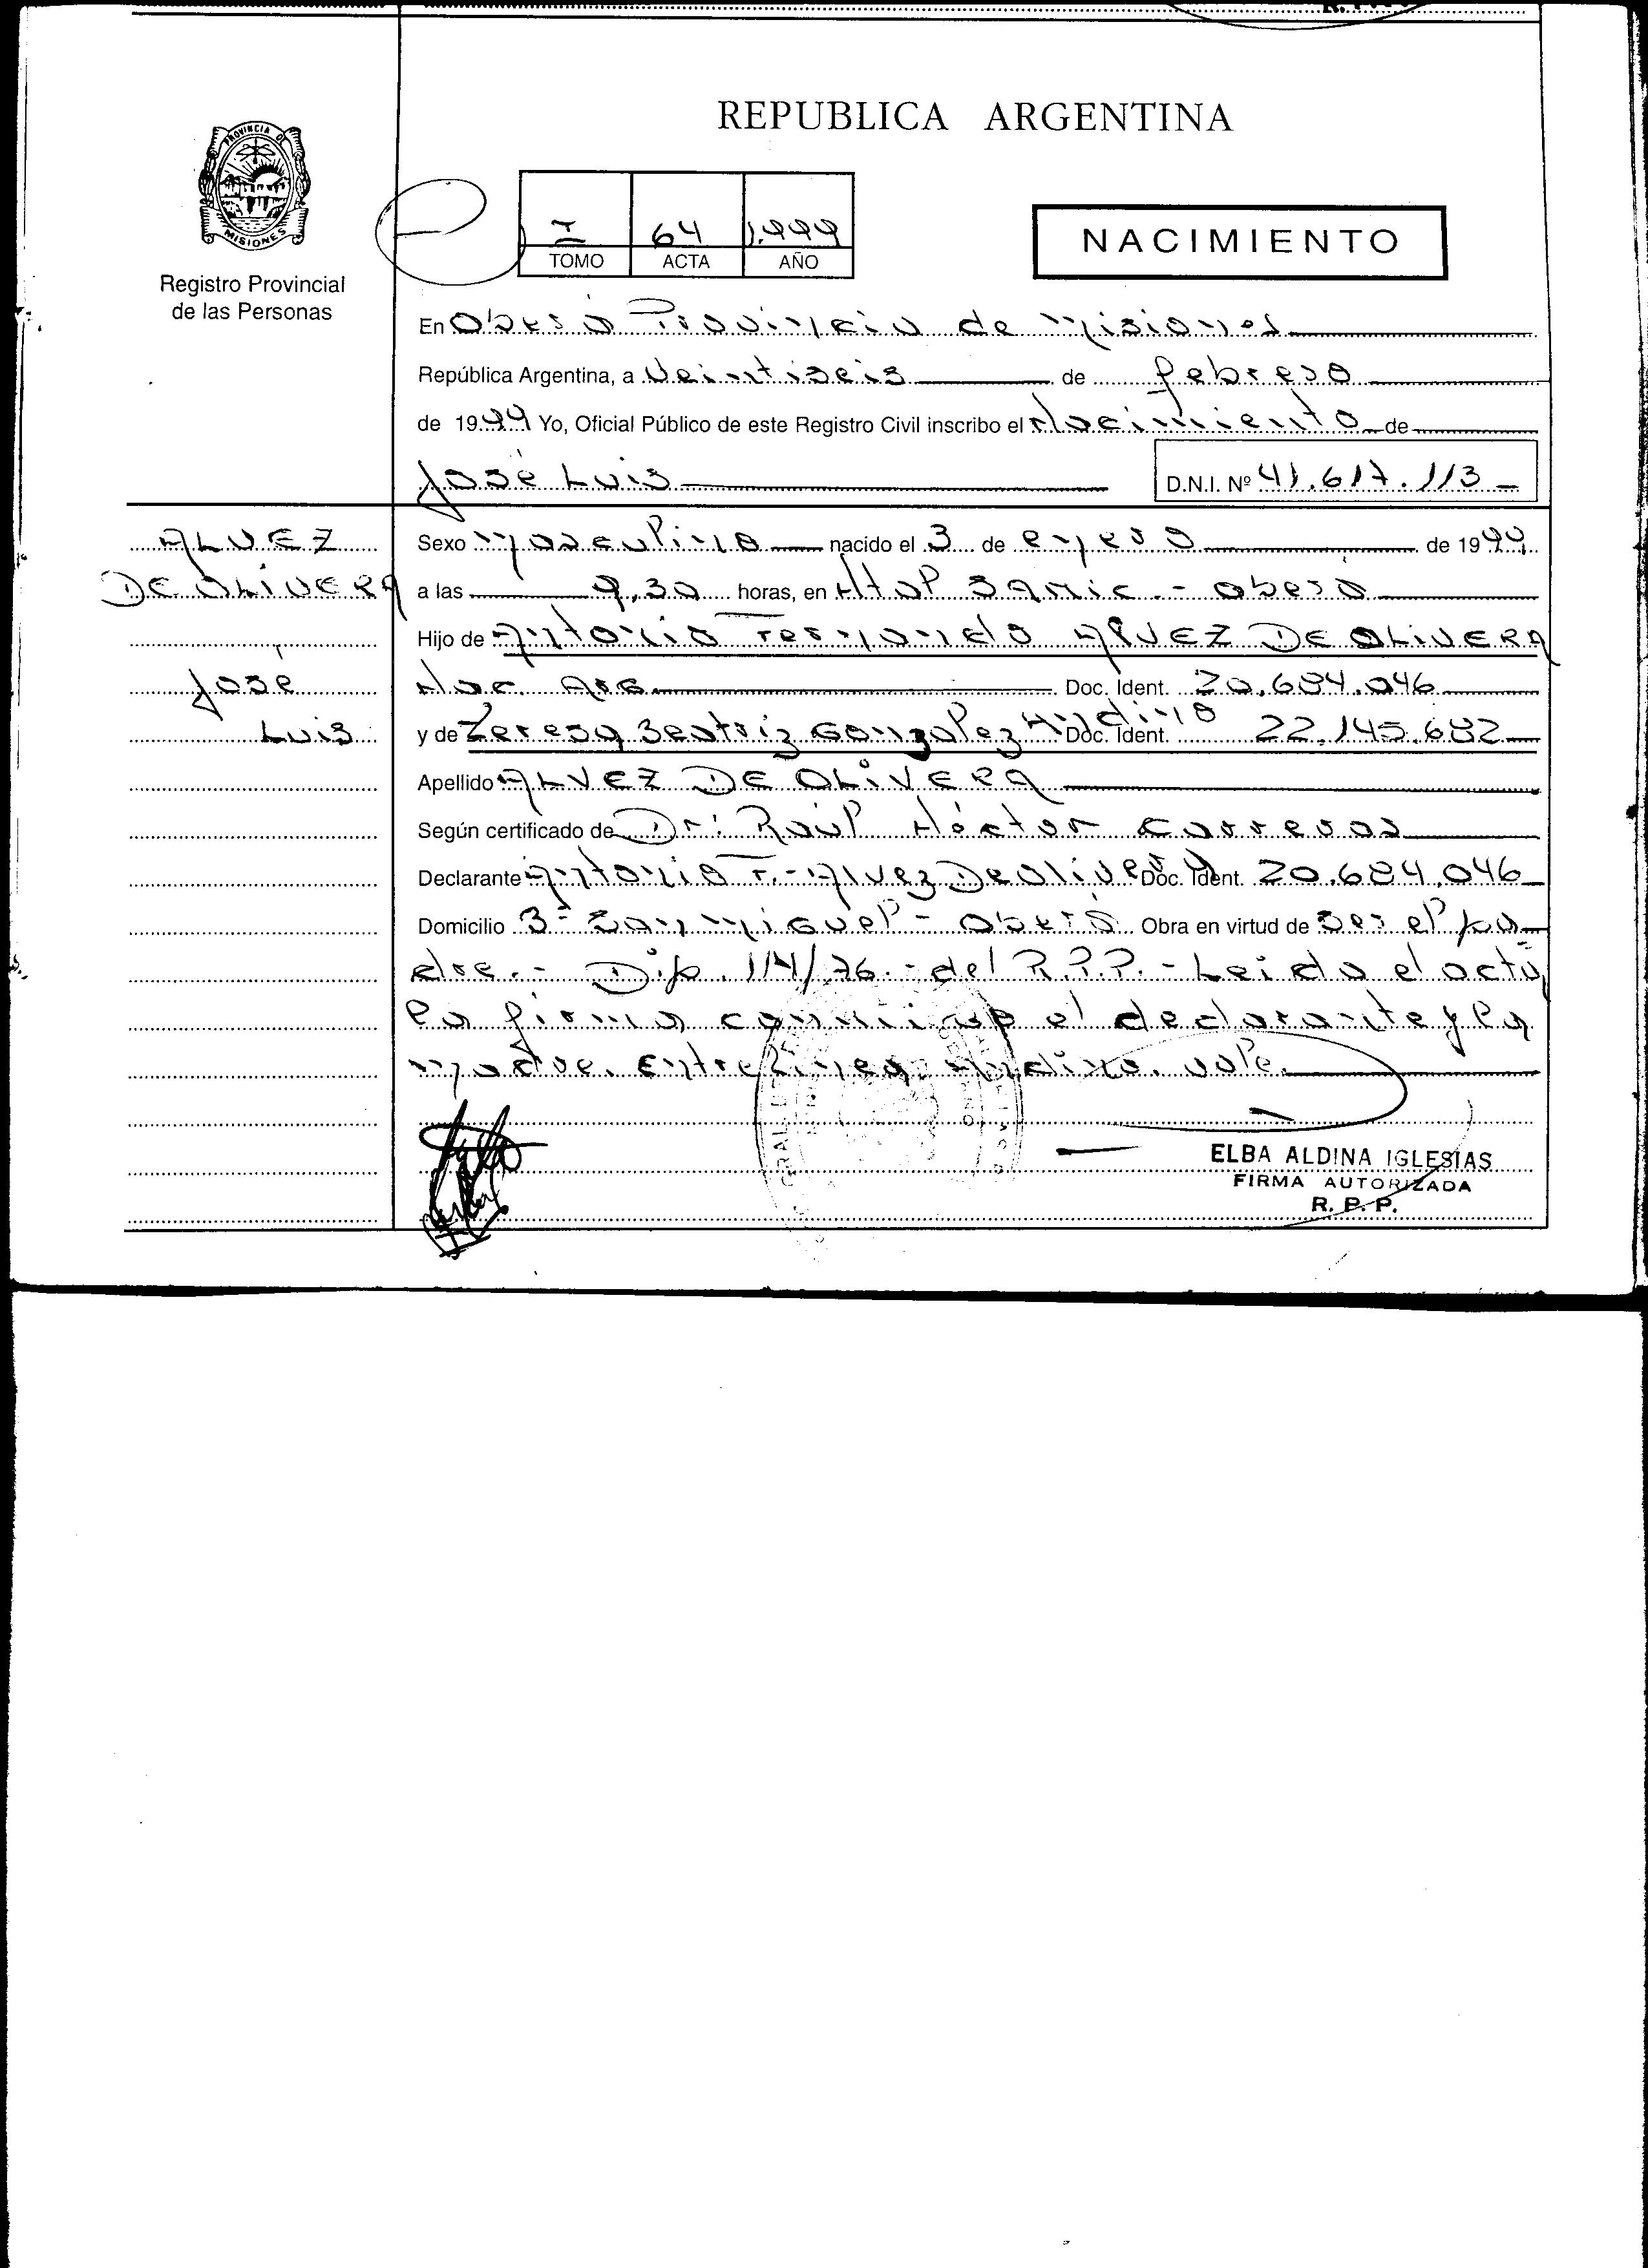 REPUBLICA ARGENTINA
PROVINCIA DE
MISIONES
Registro Provincial
de las Personas
I 64 1.999
TOMO ACTA AÑO
NACIMIENTO
En Oberá Provincia de Misiones
República Argentina, a Veintiseis de febrero
de 1999 Yo, Oficial Público de este Registro Civil inscribo el Nacimiento de
José Luis
D.N.I. Nº 41.617.113
ALVEZ
DE OLIVERA
José
Luis
Sexo Masculino nacido el 3 de enero de 1999
a las 9,30 horas, en Htal SAMIC - Oberá
Hijo de Antonio Fernando ALVEZ DE OLIVERA
Nac. Arg. Doc. Ident. 20.684.046
y de Teresa Beatriz Gonzalez Andino Doc. Ident. 22.145.682
Apellido ALVEZ DE OLIVERA
Según certificado de Dr. Raúl Héctor Carreras
Declarante Antonio F. Alvez De Olivera Doc. Ident. 20.684.046
Domicilio 3= San Miguel - Oberá Obra en virtud de ser el pa-
dre.- Dip. 114/76.- del R.P.P. - Leida el acta
la firma conmigo el declarante y la
madre. Entrelinea: Andino. vale.
ELBA ALDINA IGLESIAS
FIRMA AUTORIZADA
R. P. P.